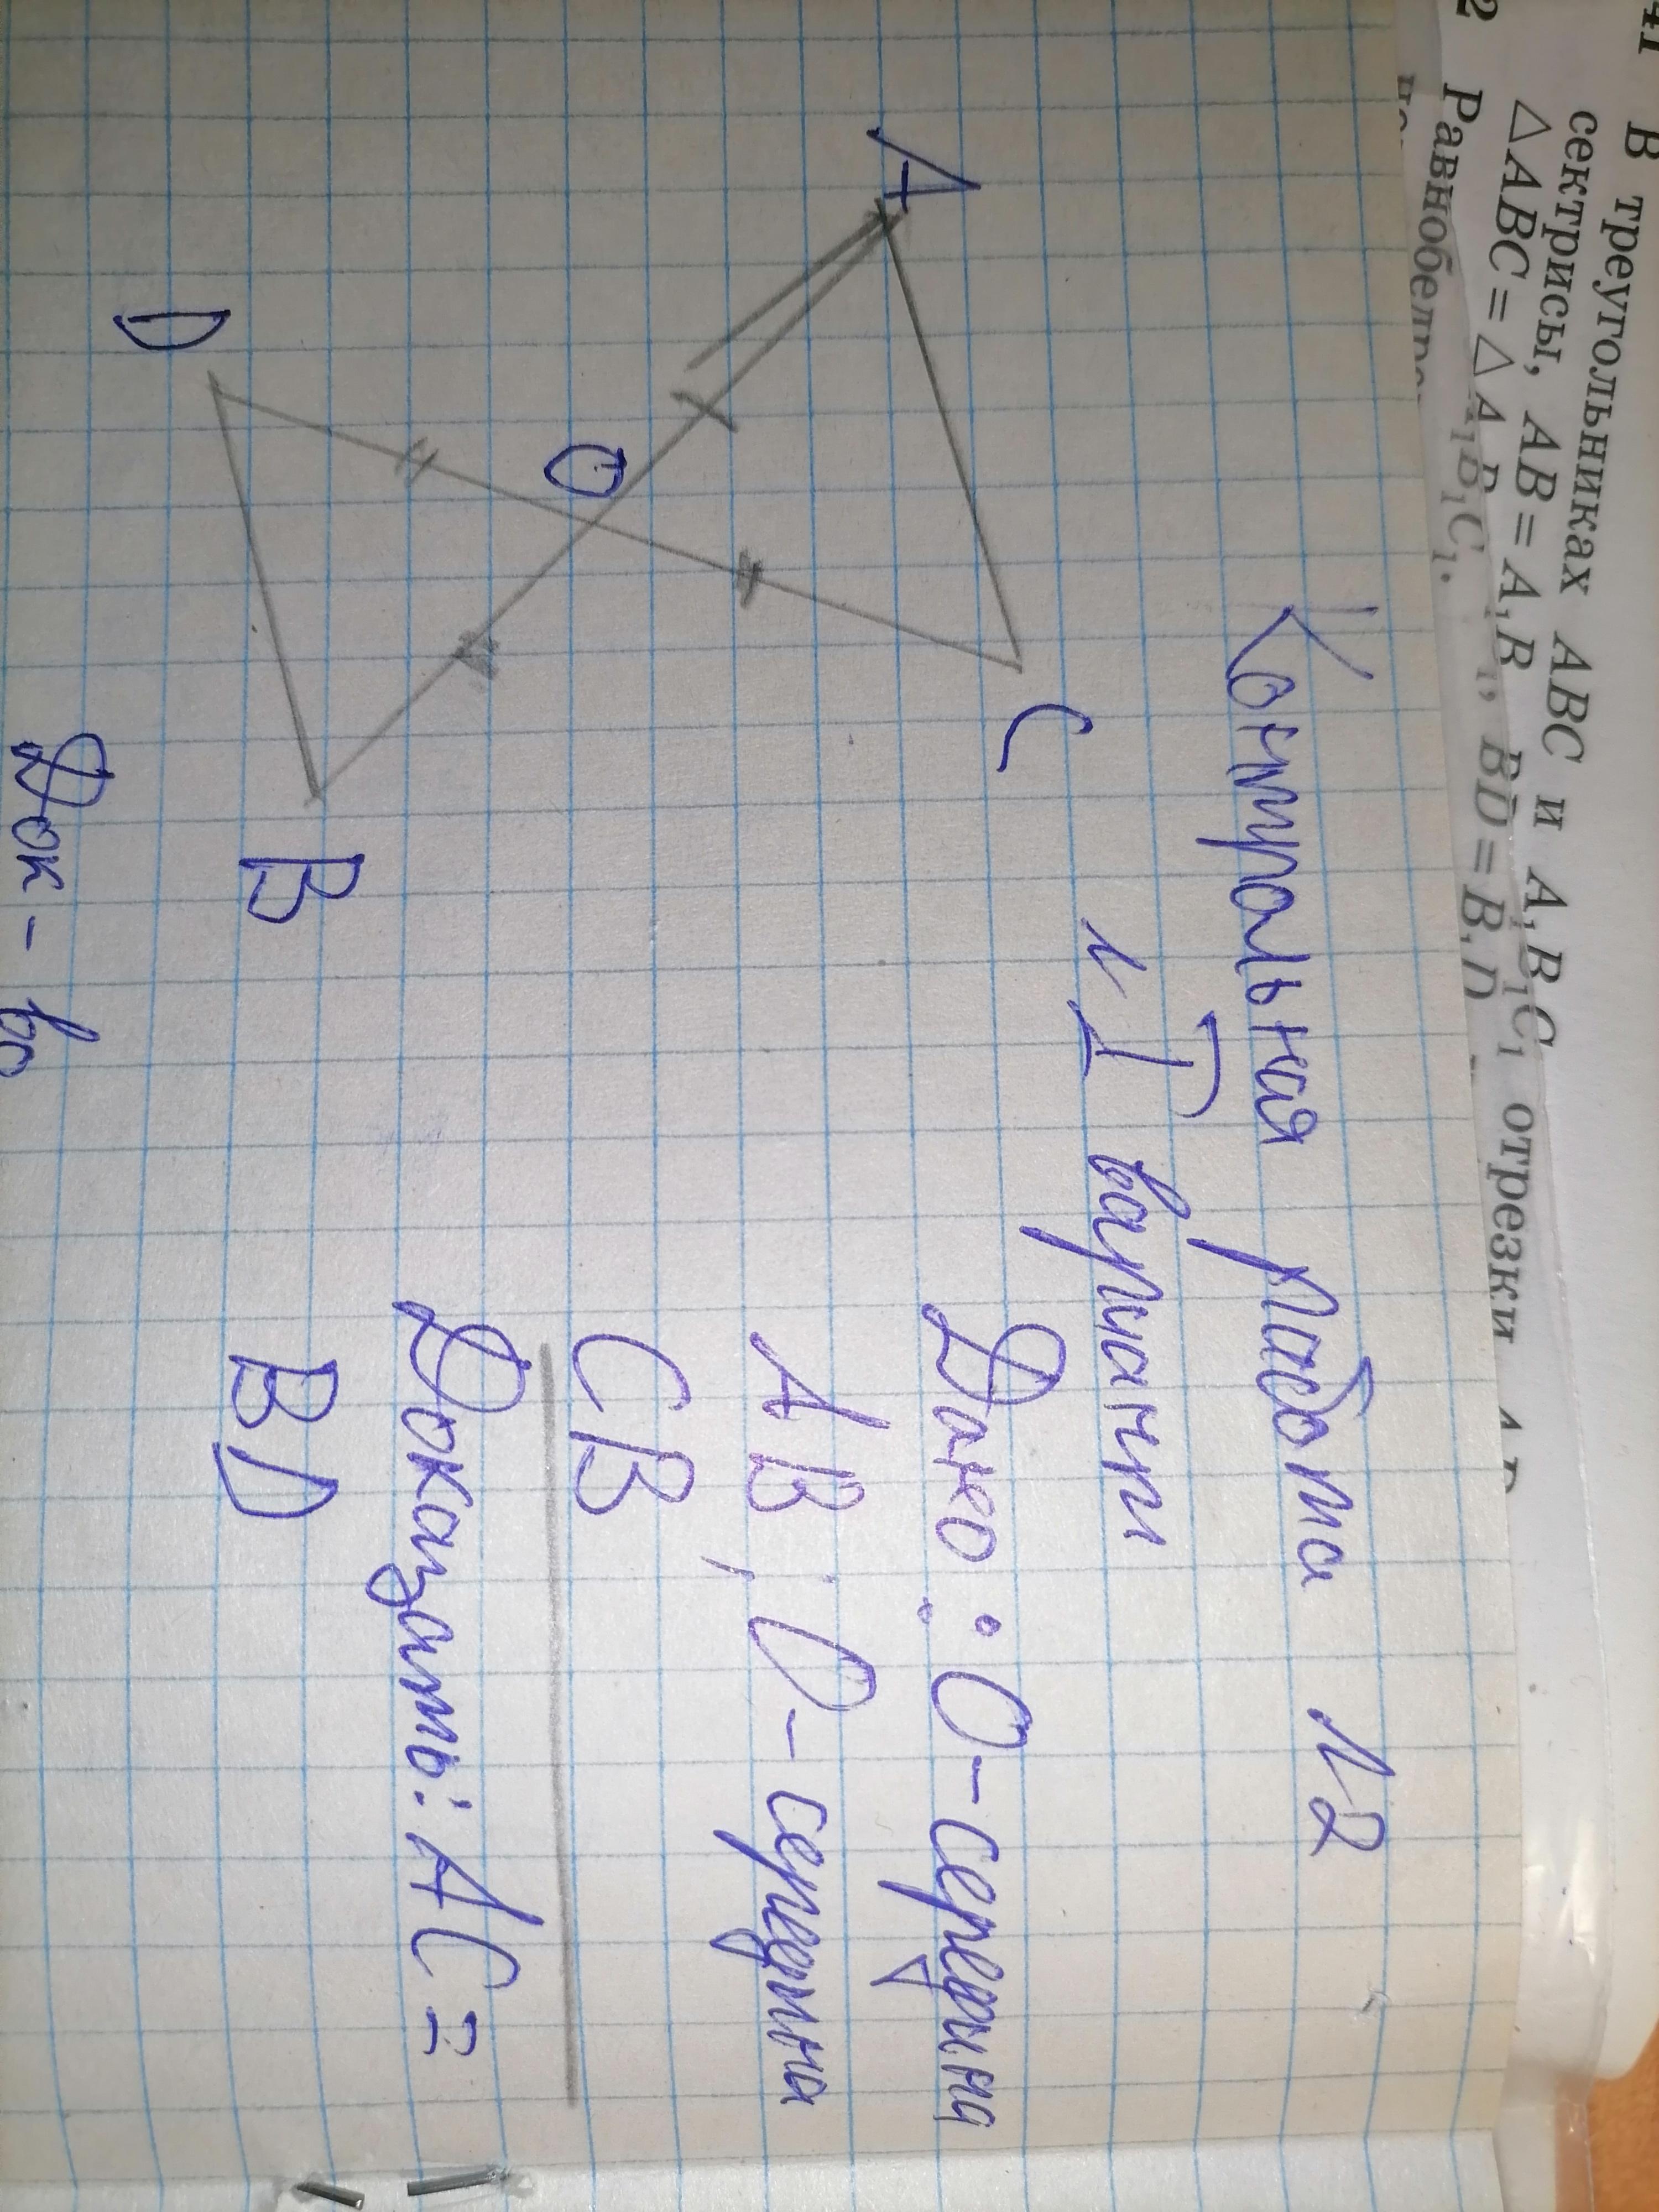 41 В треугольниках ABC и A₁B₁C₁ отрезки
сектрисы, AB = A₁B₁, BD = B₁D
△ABC = △A₁B₁C₁.
2 Равнобедре
Контрольная работа №2
I вариант
A
C
O
D
B
Дано: O - середина
AB, O - середина
CB
Доказать: AC =
BD
Док - во